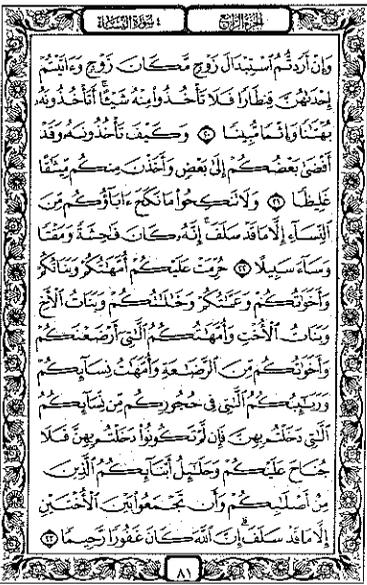 الجزء الرابع
٤ سورة النساء
وَإِنْ أَرَدتُّمُ ٱسْتِبْدَالَ زَوْجٍ مَّكَانَ زَوْجٍ وَءَاتَيْتُمْ
إِحْدَىٰهُنَّ قِنطَارًا فَلَا تَأْخُذُوا۟ مِنْهُ شَيْـًٔا ۚ أَتَأْخُذُونَهُۥ
بُهْتَـٰنًا وَإِثْمًا مُّبِينًا ٢٠ وَكَيْفَ تَأْخُذُونَهُۥ وَقَدْ
أَفْضَىٰ بَعْضُكُمْ إِلَىٰ بَعْضٍ وَأَخَذْنَ مِنكُم مِّيثَـٰقًا
غَلِيظًا ٢١ وَلَا تَنكِحُوا۟ مَا نَكَحَ ءَابَآؤُكُم مِّنَ
ٱلنِّسَآءِ إِلَّا مَا قَدْ سَلَفَ ۚ إِنَّهُۥ كَانَ فَـٰحِشَةً وَمَقْتًا
وَسَآءَ سَبِيلًا ٢٢ حُرِّمَتْ عَلَيْكُمْ أُمَّهَـٰتُكُمْ وَبَنَاتُكُمْ
وَأَخَوَٰتُكُمْ وَعَمَّـٰتُكُمْ وَخَـٰلَـٰتُكُمْ وَبَنَاتُ ٱلْأَخِ
وَبَنَاتُ ٱلْأُخْتِ وَأُمَّهَـٰتُكُمُ ٱلَّـٰتِىٓ أَرْضَعْنَكُمْ
وَأَخَوَٰتُكُم مِّنَ ٱلرَّضَـٰعَةِ وَأُمَّهَـٰتُ نِسَآئِكُمْ
وَرَبَـٰٓئِبُكُمُ ٱلَّـٰتِى فِى حُجُورِكُم مِّن نِّسَآئِكُمُ
ٱلَّـٰتِى دَخَلْتُم بِهِنَّ فَإِن لَّمْ تَكُونُوا۟ دَخَلْتُم بِهِنَّ فَلَا
جُنَاحَ عَلَيْكُمْ وَحَلَـٰٓئِلُ أَبْنَآئِكُمُ ٱلَّذِينَ
مِنْ أَصْلَـٰبِكُمْ وَأَن تَجْمَعُوا۟ بَيْنَ ٱلْأُخْتَيْنِ
إِلَّا مَا قَدْ سَلَفَ ۗ إِنَّ ٱللَّهَ كَانَ غَفُورًا رَّحِيمًا ٢٣
٨١